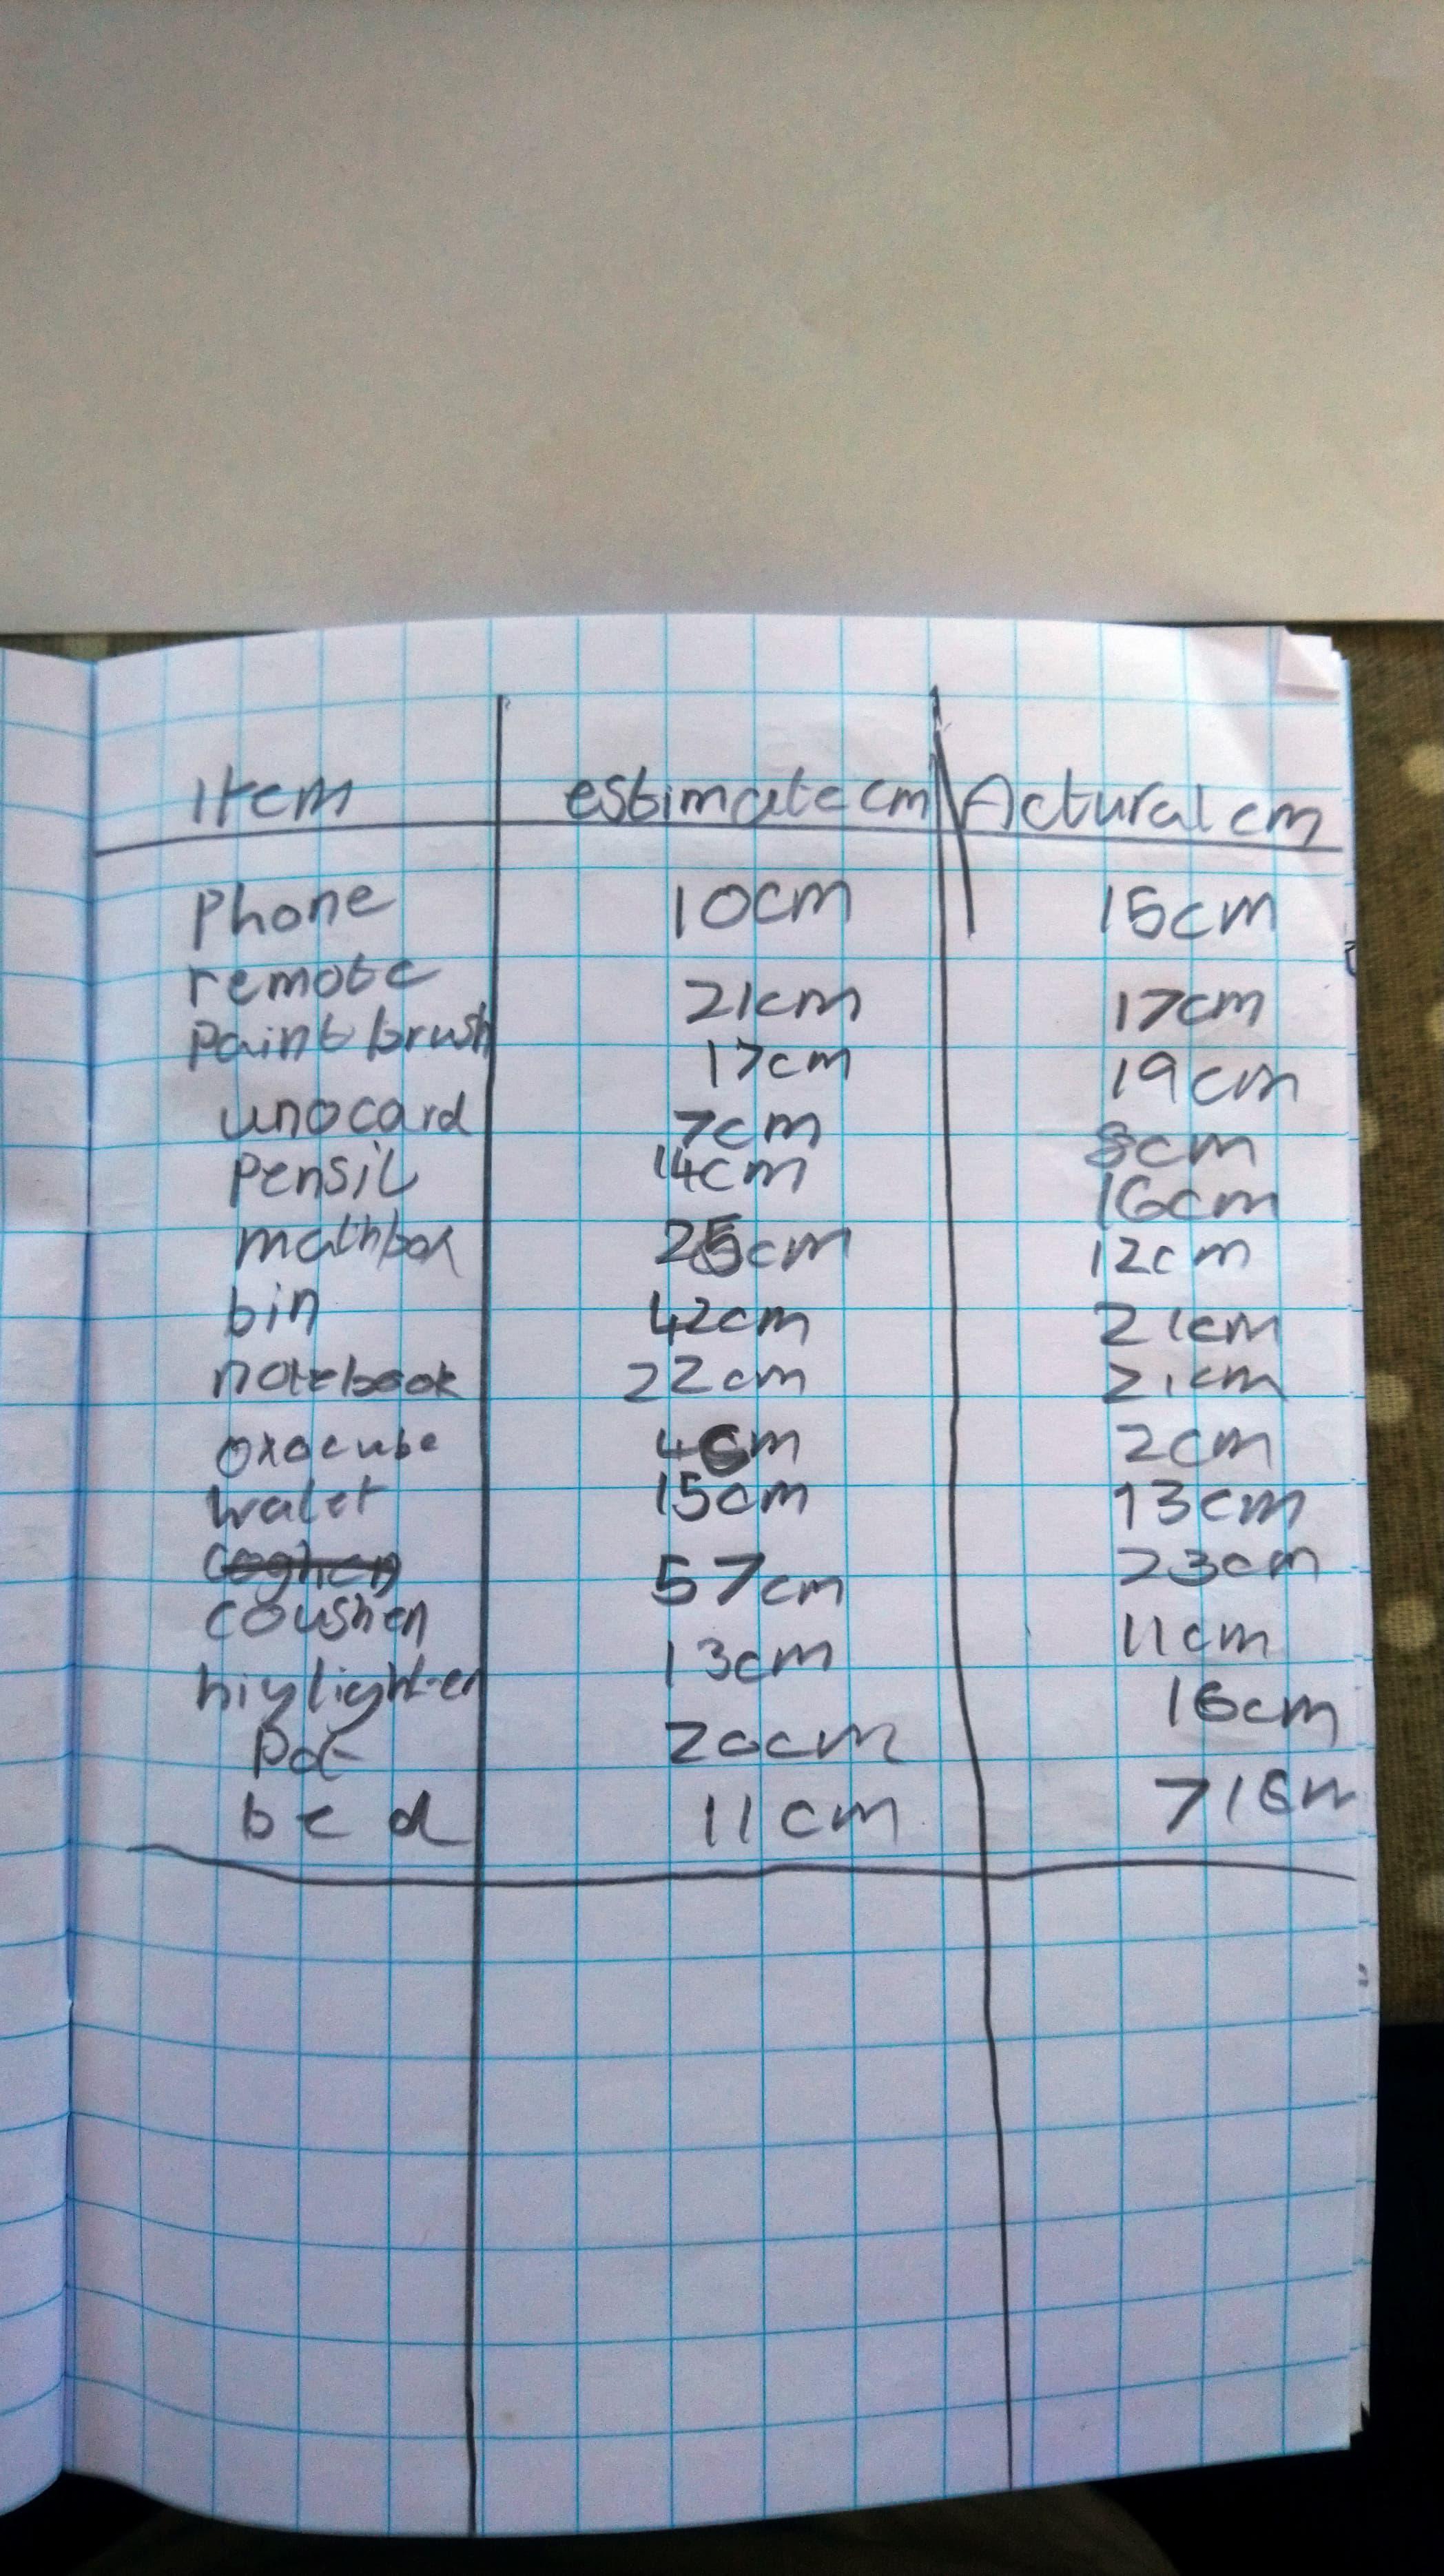 Item estimate cm Actural cm
Phone 10cm 15cm
remote 21cm 17cm
Paint brush 17cm 19cm
unocard 7cm 8cm
Pensil 14cm 16cm
mathbox 25cm 12cm
bin 42cm 21cm
notebook 22cm 21cm
oxocube 4cm 2cm
walet 15cm 13cm
coushen 57cm 23cm
hiylighter 13cm 11cm
Pot 20cm 16cm
bed 11cm